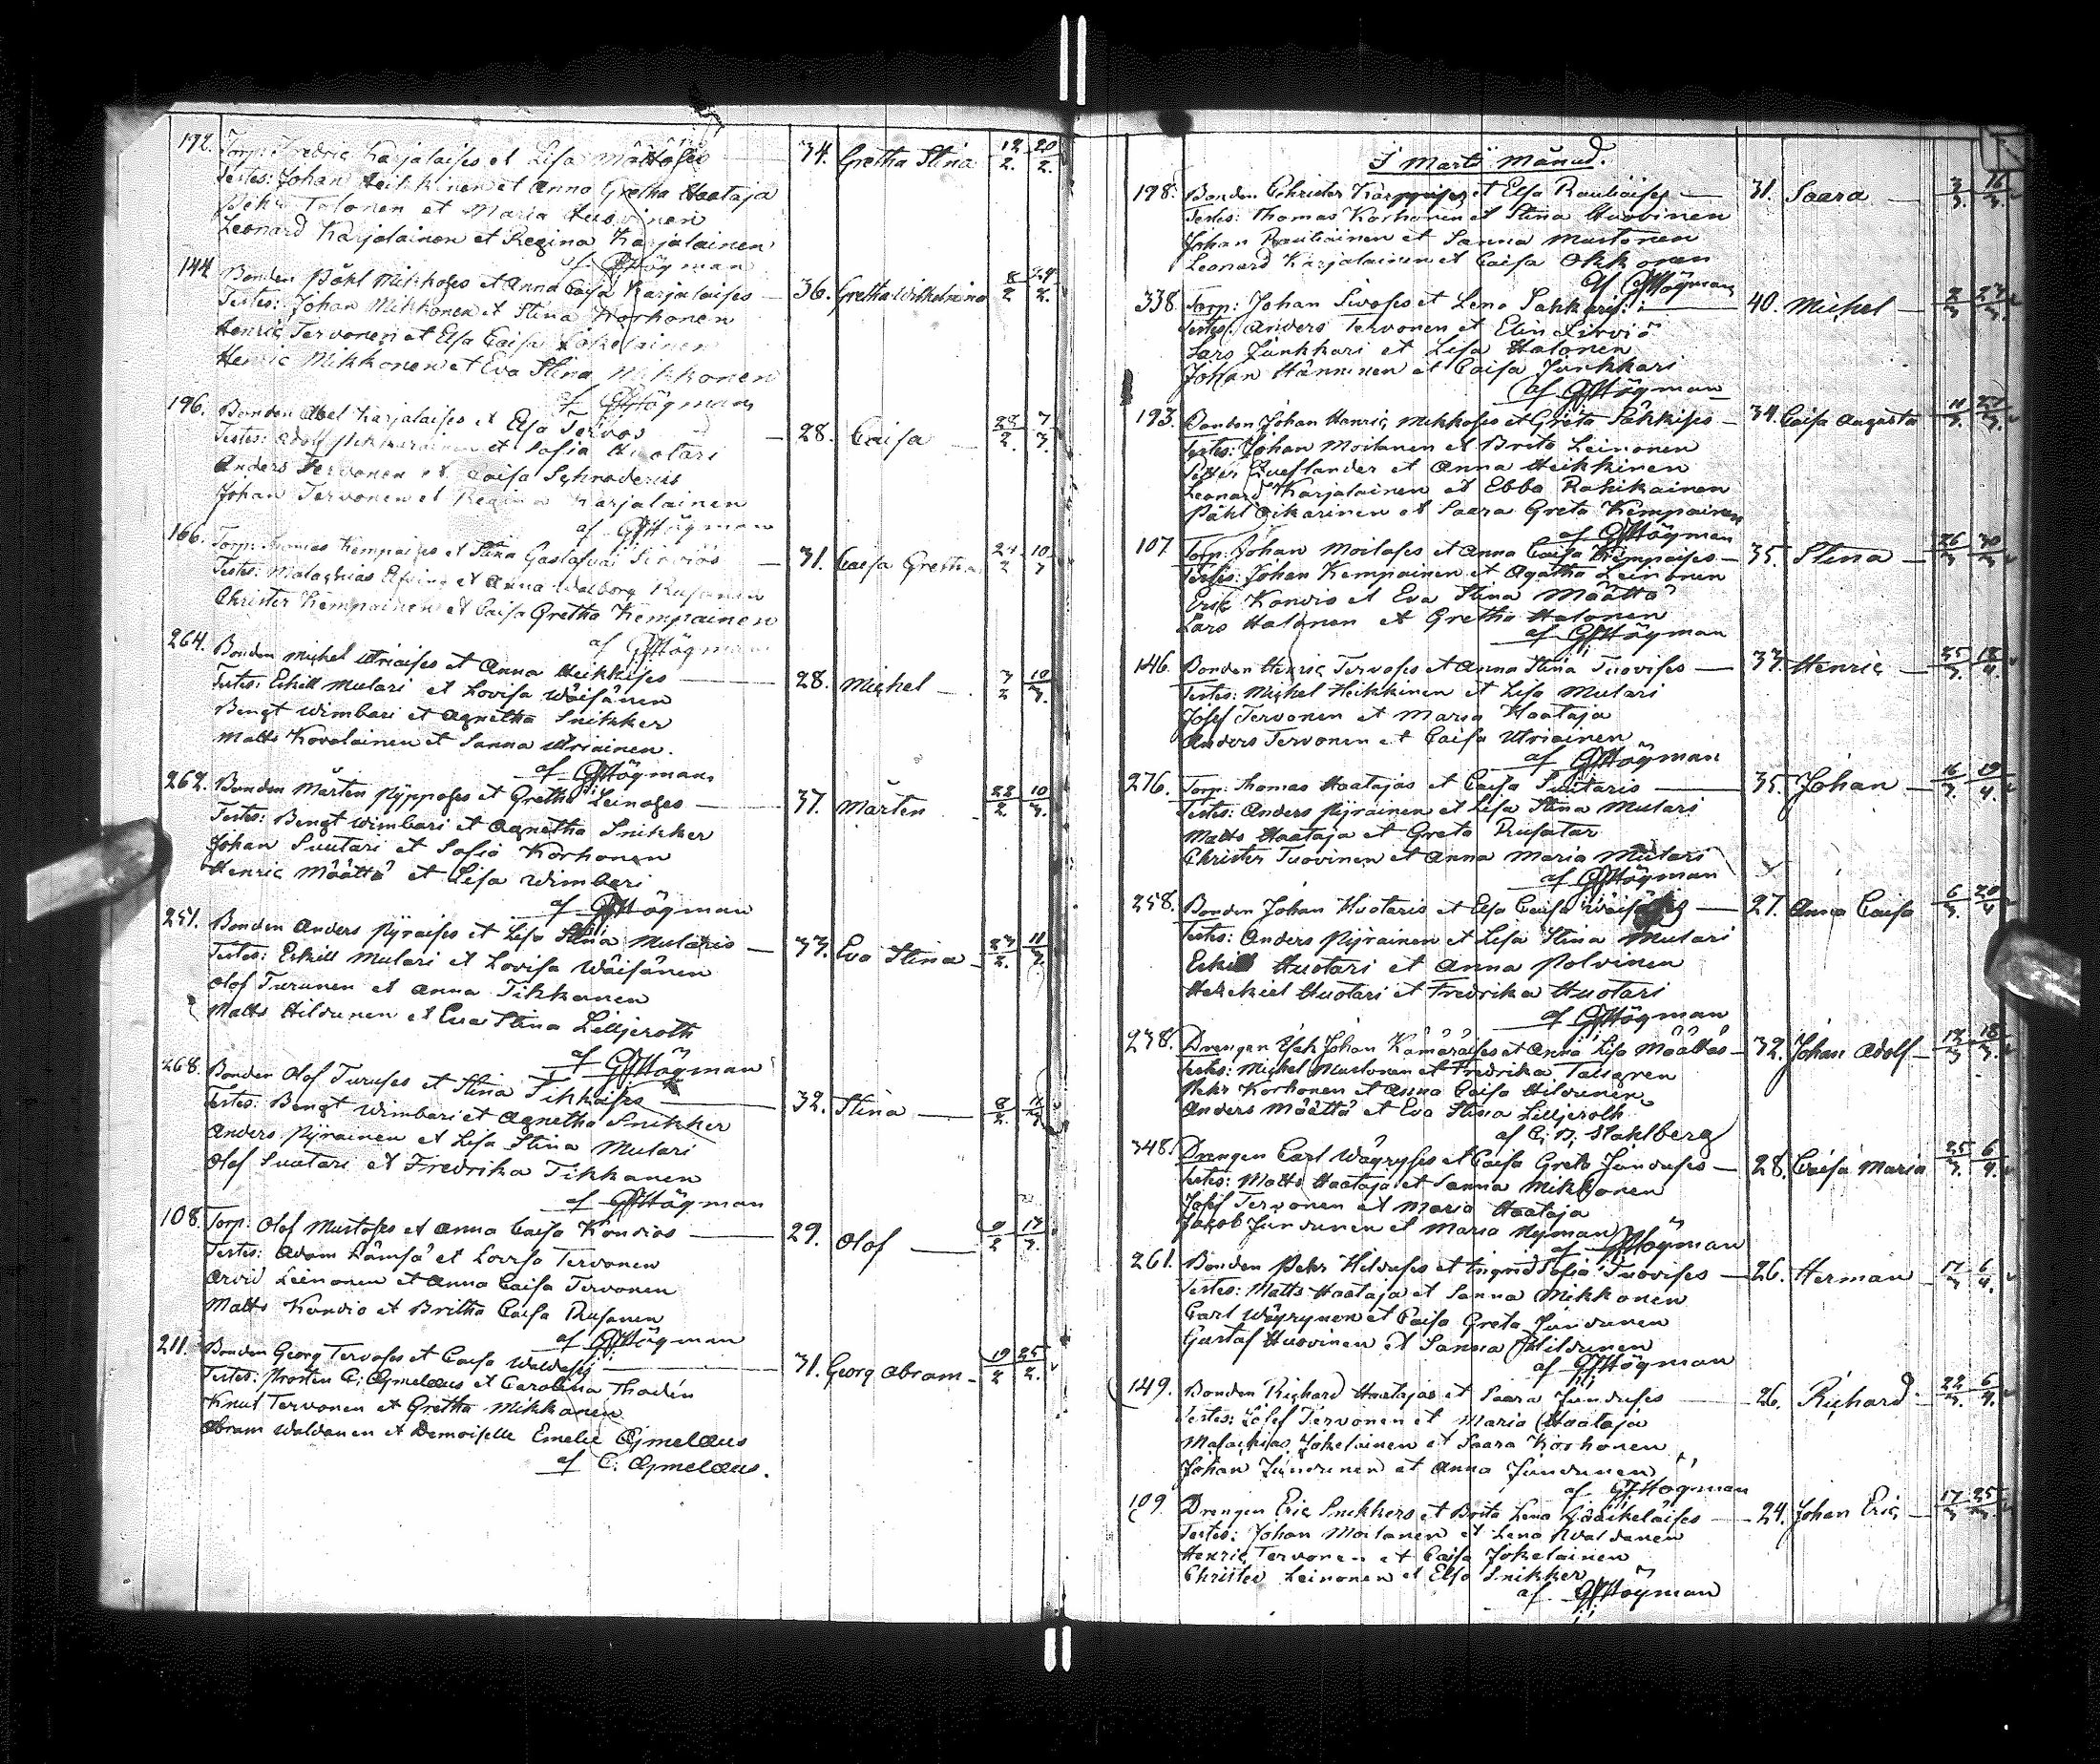 192. Torp: Fredric Karjalaises et Lisa Määttäses 34. Gretha Stina 12/2. 20/2.
Testes: Johan Heikkinen et Anna Gretha Haataja
Pehr Talonen et Maria Huovinen
Leonard Karjalainen et Regina Karjalainen
af GFHögman
144 Bonden Påhl Mikkoses et Anna Caisa Karjalaises 36. Gretha Wilhelmina 8/2 24/2.
Testes: Johan Mikkonen et Stina Korhonen
Henric Tervonen et Elsa Caisa Jokelainen
Henric Mikkonen et Eva Stina Mikkonen
af GFHögman
196. Bonden Abel Karjalaises et Elsa Tervos 28. Caisa 28/2. 7/3.
Testes: Adolf et Sofia Huotari
Anders Tervonen et Caisa Schroderus
Johan Tervonen et Regina Karjalainen
af GFHögman
166. Torp: Thomas Kempaises et Stina Gustafva Sirviös 31. Caisa Gretha 24/2 10/3
Testes: Malachias et Anna Walborg Rusanen
Christer Kempainen et Caisa Gretha Kempainen
af GFHögman
264. Bonden Michel Utriaises et Anna Heikkises 28. Michel 3/2 10/3.
Testes: Eskill Mulari et Lovisa Wäisänen
Bengt Wimbari et Agnetha Snikker
Matts Kovalainen et Sanna Utriainen.
af GFHögman
262. Bonden Mårten Pypposes et Gretha Leinoses 37. Mårten 22/2 10/3.
Testes: Bengt Wimbari et Agnetha Snikker
Johan Suutari et Sofia Korhonen
Henric Määttä et Lisa Wimbari
af GFHögman
251. Bonden Anders Pyraises et Lisa Stina Mularis 33. Eva Stina 23/2. 11/3.
Testes: Eskill Mulari et Lovisa Wäisänen
Olof Turunen et Anna Tikkanen
Matts Hildunen et Eva Stina Lilljeroth
af GFHögman
268. Bonden Olof Turuses et Stina Tikkaises 32. Stina 8/2.
Testes: Bengt Wimbari et Agnetha Snikker
Anders Pyrainen et Lisa Stina Mulari
Olof Suutari et Fredrika Tikkanen
af GFHögman
108. Torp: Olof Mustoses et Anna Caisa Kondios 29. Olof 9/2 17/3.
Testes: Adam Lämsä et Lovisa Tervonen
Arvid Leinonen et Anna Caisa Tervonen
Matts Kondio et Britha Caisa Rusanen
af GFHögman
211. Bonden Georg Tervoses et Caisa Waldases 31. Georg Abram 19/2 25/2.
Testes: Prosten C: Ajmelæus et Carolina Thodén
Knut Tervonen et Gretha Mikkonen
Abram Waldanen et Demoiselle Emelie Ajmelæus
af C: Ajmelæus.
I Martii Månad.
198. Bonden Christer Karppises et Elsa Rautiaises 31. Saara 3/3. 16/3.
Testes: Thomas Korhonen et Stina Huovinen
Johan Rautiainen et Sanna Mustonen
Leonard Karjalainen et Caisa Okkonen
af GFHögman
338. Torp: Johan Sivoses et Lena Sakkaris: 40. Michel 2/3 23/3.
Testes: Anders Tervonen et Elin Sirviö
Lars Junkkari et Lisa Halonen
Johan Hänninen et Caisa Junkkari
af GFHögman
193. Bonden Johan Henric Mikkoses et Greta Säkkises 34. Caisa Augusta 11/3. 27/3.
Testes: Johan Moilanen et Brita Leinonen
Petter et Anna Heikkinen
Leonard Karjalainen et Ebba Rahikainen
Påhl Oikarinen et Saara Greta Kempainen
af GFHögman
107 Torp: Johan Moilases et Anna Caisa Kempaises 35. Stina 26/3 30/3
Testes: Johan Kempainen et Agatha Leinonen
Erik Kondio et Eva Stina Määttä
Lars Halonen et Gretha Halonen
af GFHögman
146. Bonden Henric Tervoses et Anna Stina Tuovises 33. Henric 25/3. 12/4.
Testes: Michel Heikkinen et Lisa Mulari
Josef Tervonen et Maria Haataja
Anders Tervonen et Caisa Utriainen
af GFHögman
276. Torp: Thomas Haatajas et Caisa Suutaris 35. Johan 16/3. 19/4.
Testes: Anders Pyrainen et Lisa Stina Mulari
Matts Haataja et Greta Rusatar
Christer Tuovinen et Anna Maria Mulari
af GFHögman
258. Bonden Johan Huotaris et Elsa Caisa 27. Anna Caisa 6/3. 20/4
Testes: Anders Pyrainen et Lisa Stina Mulari
Eskill Huotari et Anna Polvinen
Hesekiel Huotari et Fredrika Huotari
af GFHögman
238. Drengen Isak Johan Kämäräises et Anna Lisa Määttäs 32. Johan Adolf 12/3 18/3.
Testes: Michel Mustonen et Fredrika Talsgren
Pehr Korhonen et Anna Caisa Hildunen
Anders Määttä et Eva Stina Lilljeroth
af C: D: Stahlberg
348. Drengen Carl Wäyryses et Caisa Greta Junduses 28. Caisa Maria 25/3. 6/4.
Testes: Matts Haataja et Sanna Mikkonen
Josef Tervonen et Maria Haataja
Jakob Jundunen et Maria Nyman
af GFHögman
261. Bonden Pehr Hilduses et Ingrid Sofia Tuovises 26. Herman 17/3 6/4.
Testes: Matts Haataja et Sanna Mikkonen
Carl Wäyrynen et Caisa Greta Jundunen
Gustaf Huovinen et Sanna Hildunen
af GFHögman
149. Bonden Richard Haatajas et Saara Junduses 26. Richard 22/3. 6/4.
Testes: Josef Tervonen et Maria Haataja
Malachias Jokelainen et Saara Korhonen
Johan Jundunen et Anna Jundunen
af GFHögman
109. Drengen Eric Snikkers et Brita Lena Jääskeläises 24. Johan Eric 17/3 25/3.
Testes: Johan Moilanen et Lena Waldanen
Henric Tervonen et Caisa Jokelainen
Christer Leinonen et Elsa Snikker
af GFHögman